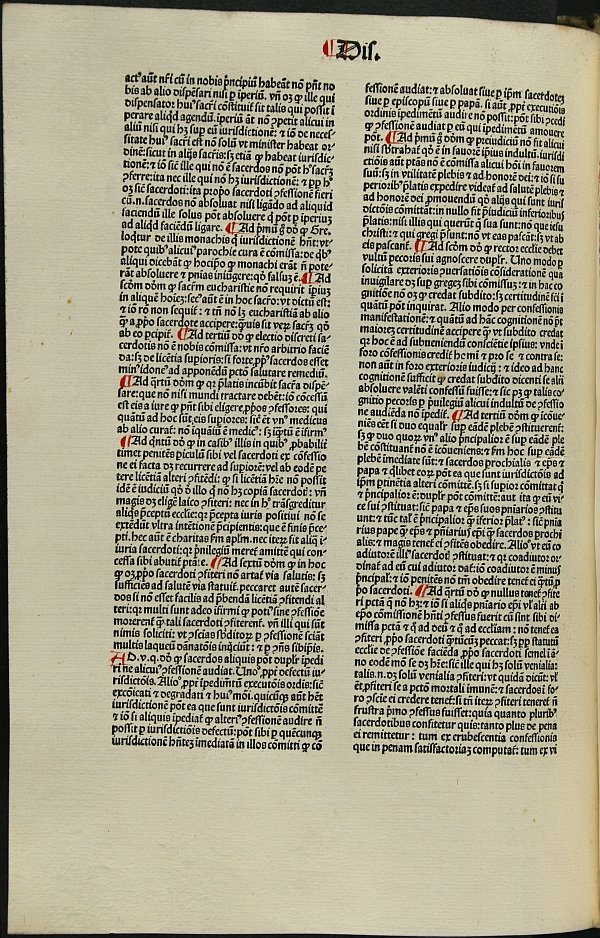 ¶ Dis.
act⁹ aūt nr̄i cū in nobis p̄ncipiū habeāt nō p̄nt no
bis ab alio dispēsari nisi ꝑ iperiū. vn̄ oꝫ ꝙ ille qui
dispensator hui⁹ sacri cōstituit᷑ sit talis qui possit ī
perare aliqd agendū. iperiū āt nō cōpetit alicui in
aliū nisi qui hꝫ sup eū iurisdictionē: ⁊ iō de neces
sitate hui⁹ sacri est nō solū vt minister habeat or
dinē: sicut in alijs sacris: sꝫ etiā ꝙ habeat iurisdic
tionē: ⁊ iō sic̄ ille qui nō ē sacerdos nō pōt h⁹ sacr̄ꝫ
ꝯferre: ita nec ille qui nō hꝫ iurisdictionē: ⁊ ꝓp h⁹
oꝫ sic̄ sacerdoti: ita ꝓpo sacerdoti ꝯfessionē fieri
cū. n. sacerdos nō absoluat nisi ligādo ad aliquid
faciendū ille solus pōt absoluere q̄ pōt ꝑ iperiuꝫ
ad aliqd faciēdū ligare. ¶ Ad p̄mū g̊ dō̄m ꝙ Gre.
loquit᷑ de illis monachis q̇ iurisdictionē hn̄t: vt
pote quib⁹ alicui⁹ parochie cura ē cōmissa: de qb⁹
aliqui dicebāt ꝙ hocipō ꝙ monachi erāt nō pote
rāt absoluere ⁊ pnias iniūgere: qḋ falsuꝫ ē. ¶ Ad
scōm dōm ꝙ sacr̄m eucharistie nō requirit ipiuꝫ
in aliquē hoiēꝫ: sec⁹ aūt ē in hoc sacro: vt dictū est:
⁊ iō rō non sequit᷑: ⁊ tn̄ nō lꝫ eucharistiā ab alio
ꝙ̄ a ꝓpo sacerdote accipere: quis sit veꝝ sacr̄ꝫ qḋ
ab eo pcipit᷑. ¶ Ad tertiū dō̄m ꝙ electio discreti sa
cerdotis nō ē nobis cōmissa: vt nr̄o arbitrio faciē
da: sꝫ de licētia supioris: si forte ꝓp̄ sacerdos esset
min⁹ idone⁹ ad apponēdū pctō salutare remediū.
¶ Ad q̄rtū dōm ꝙ qꝛ p̄latis incūbit sacra dispē
sare: que nō nisi mundi tractare debēt: iō cōcessū
est eis a iure ꝙ p̄nt sibi eligere ꝓpos ꝯfessores: qui
quātū ad hoc sūt eis supiores: sic̄ ēt vn⁹ medicus
ab alio curat᷑: nō iquātū ē medic⁹: sꝫ iq̄tū ē ifirm⁹
¶ Ad q̄ntū dō̄m ꝙ in casib⁹ illis in quib⁹ ꝓbabilit᷑
timet penitēs piculū sibi vel sacerdoti ex cōfessio
ne ei facta oꝫ recurrere ad supiorē: vel ab eodē pe
tere licētiā alteri ꝯfitēdi: ꝙ si licētiā hr̄e nō possit
idē ē iudiciū qḋ d̓ illo q̄ nō hꝫ copiā sacerdoti: vn̄
magis oꝫ eligē laico ꝯfiteri: nec in h⁹ trāsgreditur
aliq̄s p̄ceptū ecclie: qꝛ p̄cepta iuris positiui nō se
extēdūt vltra intētionē p̄cipientis: que ē finis p̄ce
pti. hec aūt ē charitas s̄m aplm. nec iteꝝ fit aliq̄ i
iuria sacerdoti: qꝛ p̄uilegiū meret᷑ amittē qui con
cessa sibi abutit᷑ ptāte. ¶ Ad sextū dō̄m ꝙ in hoc
ꝙ oꝫ ꝓpo sacerdoti ꝯfiteri nō artat᷑ via salutis: sꝫ
sufficiēs ad salutē via statuit᷑. peccaret aūt sacer
dos si nō esset facilis ad p̄bendā licētiā ꝯfitendi al
teri: qꝛ multi sunt adeo ifirmi ꝙ poti⁹ sine ꝯfessiōe
morerent᷑ ꝙ̄ tali sacerdoti ꝯfiterent᷑. vn̄ illi qui sūt
nimis soliciti: vt ꝯsciās sbditoꝝ ꝑ ꝯfessionē sciāt
multis laqueū dānatōis inijciūt: ⁊ ꝑ ꝯn̄s sibijpis.
AD. v. q. dō̄ ꝙ sacerdos aliquis pōt duplr̄ ipedi
ri ne alicui⁹ ꝯfessionē audiat. Uno⁹ ꝓpt̄ defectū iu
risdictōis. Alio⁹ ꝓpt̄ ipedim̄tū executōis ordis: sic̄
excōicati ⁊ degradati ⁊ hui⁹ mōi. quicūqꝫ aūt hēt
iurisdictionē pōt ea que sunt iurisdictōis cōmittē
⁊ iō si aliquis ipediat᷑ ꝙ alteri⁹ ꝯfessionē audire nō
possit ꝑ iurisdictiōis defectū: pōt sibi ꝑ quēcunqꝫ
iurisdictionē hn̄teꝫ imediatā in illos cōmitti ꝙ cō
fessionē audiat: ⁊ absoluat siue ꝑ ip̄m sacerdoteꝫ
siue ꝑ episcopū siue ꝑ papā. si aūt ꝓpt̄ executiōis
ordinis ipedimētū audire nō possit: pōt sibi ꝯcedi
ꝙ ꝯfessionē audiat ꝑ eū qui ipedimētū amouere
pōt. ¶ Ad p̄mū g̊ dōm ꝙ preiudiciū nō fit alicui
nisi sbtrahat᷑ qḋ ē in fauorē ip̄ius indultū. iurisdi
ctiōis aūt ptās nō ē cōmissa alicui hōi in fauorem
suū: sꝫ in vtilitatē plebis ⁊ ad honorē dei: ⁊ iō si su
perioribꝰ p̄latis expedire videat᷑ ad salutē plebis ⁊
ad honorē dei ꝓmouendū qḋ alijs qui sunt iuris
dictōis cōmittāt: in nullo fit p̄iudiciū inferioribus
p̄latis: nisi illis qui querūt q̄ sua sunt: nō que iesu
christi: ⁊ qui gregi p̄sunt: nō vt eas pascāt: sꝫ vt ab
eis pascant᷑. ¶ Ad scōm dō̄m ꝙ rector ecclie debet
vultū pecoris sui agnoscere duplr̄. Uno modo ꝑ
solicitā exterioris ꝯuersatiōis cōsiderationē qua
inuigilare dꝫ sup gregeꝫ sibi cōmissuꝫ: ⁊ in hac co
gnitiōe nō oꝫ ꝙ credat subdito: sꝫ certitudinē scī i
quātū pōt inquirat. Alio modo per confessionis
manifestationē: ⁊ quātū ad hāc cognitionē nō pōt
maioreꝫ certitudinē accipere ꝙ̄ vt subdito credat
qꝛ hoc ē ad subueniendū consciētie ip̄sius: vnde ī
foro cōfessionis credit᷑ homi ⁊ ꝓ se ⁊ contra se:
non aūt in foro exterioris iudicij: ⁊ ideo ad hanc
cognitionē sufficit ꝙ credat subdito dicenti se alij
absoluere valēti confessū fuisse: ⁊ sic pꝫ ꝙ talis co
gnitio pecoris ꝑ p̄uilegiū alicui indultū de ꝯfessio
ne audiēda nō ipedit᷑. ¶ Ad tertiū dōm ꝙ icōue
niēs eēt si duo equalr̄ sup eādē plebē ꝯstituerent᷑:
sꝫ ꝙ duo quoꝝ vn⁹ alio p̄ncipalior ē sup eādē ple
bē cōstituant᷑ nō ē icōueniens: ⁊ s̄m hoc sup eandē
plebē imediate sūt: ⁊ sacerdos prochialis ⁊ ep̄s ⁊
papa ⁊ qlibet eoꝝ pōt ea que sunt iurisdictōis ad
ip̄m ꝑtinētia alteri cōmittē. sꝫ si supior cōmittat q̄
⁊ p̄ncipalior ē: duplr̄ pōt cōmittē: aut ita ꝙ eū vi
ce sui ꝯstituat: sic̄ papa ⁊ ep̄s suos pniarios ꝯstitu
unt: ⁊ tūc tal̓ ē p̄ncipalior ꝙ̄ iferior p̄lat⁹: sic̄ pnia
rius pape ꝙ̄ ep̄s ⁊ pniarius epi ꝙ̄ sacerdos prochi
alis: ⁊ magis tenet᷑ ei ꝯfitēs obedire. Alio⁹ vt eū co
adiutorē illi⁹ sacerdoti ꝯstituat: ⁊ qꝛ coadiutor or
dinat᷑ ad eū cui adiutor dat᷑: iō coadiutor ē minus
p̄ncipal̓: ⁊ iō penitēs nō tm̄ obedire tenet᷑ ei q̄tū ꝓ
ꝓo sacerdoti. ¶ Ad q̄rtū dō̄ ꝙ nullus tenet᷑ ꝯfite
ri pctā q̄ nō hꝫ: ⁊ iō si aliq̄s pniario epi vl̓ alij ab
epo cōmissionē hn̄ti ꝯfessus fuerit cū sint sibi di
missa pctā ⁊ q̄ ad deū ⁊ q̄ ad eccliam: nō tenet᷑ ea
ꝯfiteri ꝓpo sacerdoti q̄ticūqꝫ peccat: sꝫ ꝓpt̄ statutū
ecclie de ꝯfessione faciēda, ꝓpo sacerdoti semel ī a
no eodē mō se dꝫ hr̄e: sic̄ ille qui hꝫ solū venialia:
talis. n. dꝫ solū venialia ꝯfiteri: vt quidā dicūt: vl̓
ēt ꝓfiteri se a pctō mortali imunē: ⁊ sacerdos ī fo
ro ꝯscie ei credere tenet᷑: si tn̄ iteꝝ ꝯfiteri teneret᷑ nō
frustra p̄mo ꝯfessus fuisset: quia quanto pluribꝰ
sacerdotibus confitetur quis: tanto plus de pena
ei remittetur: tum ex erubescentia confessionis
que in penam satisfactoriaꝫ computat᷑: tum ex vi